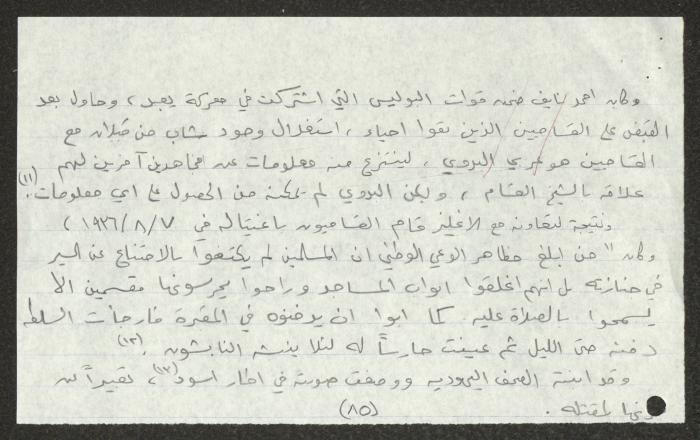 وكان احمد نايف ضمن قوات البوليس التي اشتركت في معركة يعبد ، وحاول بعد
القبض على القساميين الذين بقوا احياء ، استغلال وجود شاب من قبلان مع
القساميين هو عربي البدوي ، لينتزع منه معلومات عن مجاهدين آخرين لهم
علاقة بالشيخ القسام ، ولكن البدوي لم يمكنه من الحصول على اي معلومات. (١١)
ونتيجة لتعاونه مع الانجليز قام القساميون باغتياله في ١٩٣٦/٨/٧ ،
وكان " من ابلغ مظاهر الوعي الوطني ان المسلمين لم يكتفوا بالامتناع عن السير
في جنازته بل انهم اغلقوا ابواب المساجد وراحوا يحرسونها مقسمين الا
يسمحوا بالصلاة عليه كما ابوا ان يدفنوه في المقبرة فارجأت السلطه
دفنه حتى الليل ثم عينت حارساً له لئلا ينبشه النابشون . (١٢)
وقد ابنته الصحف اليهوديه ووضعت صورته في اطار اسود (١٣)، تعبيراً عن
لمقتله .
(٨٥)